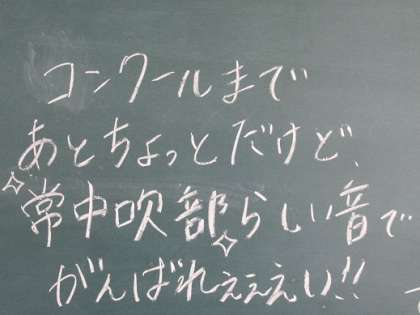 コンクールまで
あとちょっとだけど、
常中吹部らしい音で
がんばれぇぇぇい!!